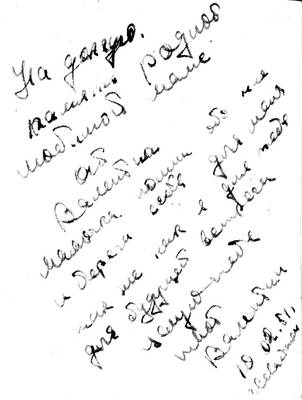 На долгую
память Родной
любимой маме
от
Валентина
мамочка помни обо мне
и береги себя для меня
так же как я для тебя
для будущей встречи
целую тебя
твой
Валентин
10.02.51,